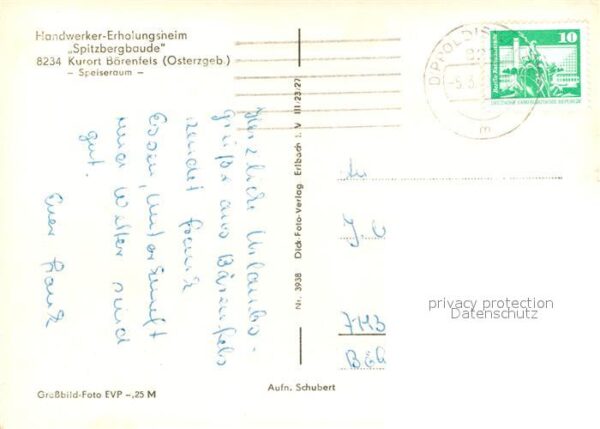 Handwerker-Erholungsheim
„Spitzbergbaude"
8234 Kurort Bärenfels (Osterzgeb.)
- Speiseraum -
Herzliche Urlaubs-
grüße aus Bärenfels
sendet Frank
Essen, Unterkunft
und Wetter sind
gut.
Euer Frank
Nr. 3938 Dick-Foto-Verlag Erlbach i. V III/23/27
DIPPOLDIS
-5.3
10
DEUTSCHE DEMOKRATISCHE REPUBLIK
An
privacy protection
Datenschutz
Aufn. Schubert
Großbild-Foto EVP -,25 M